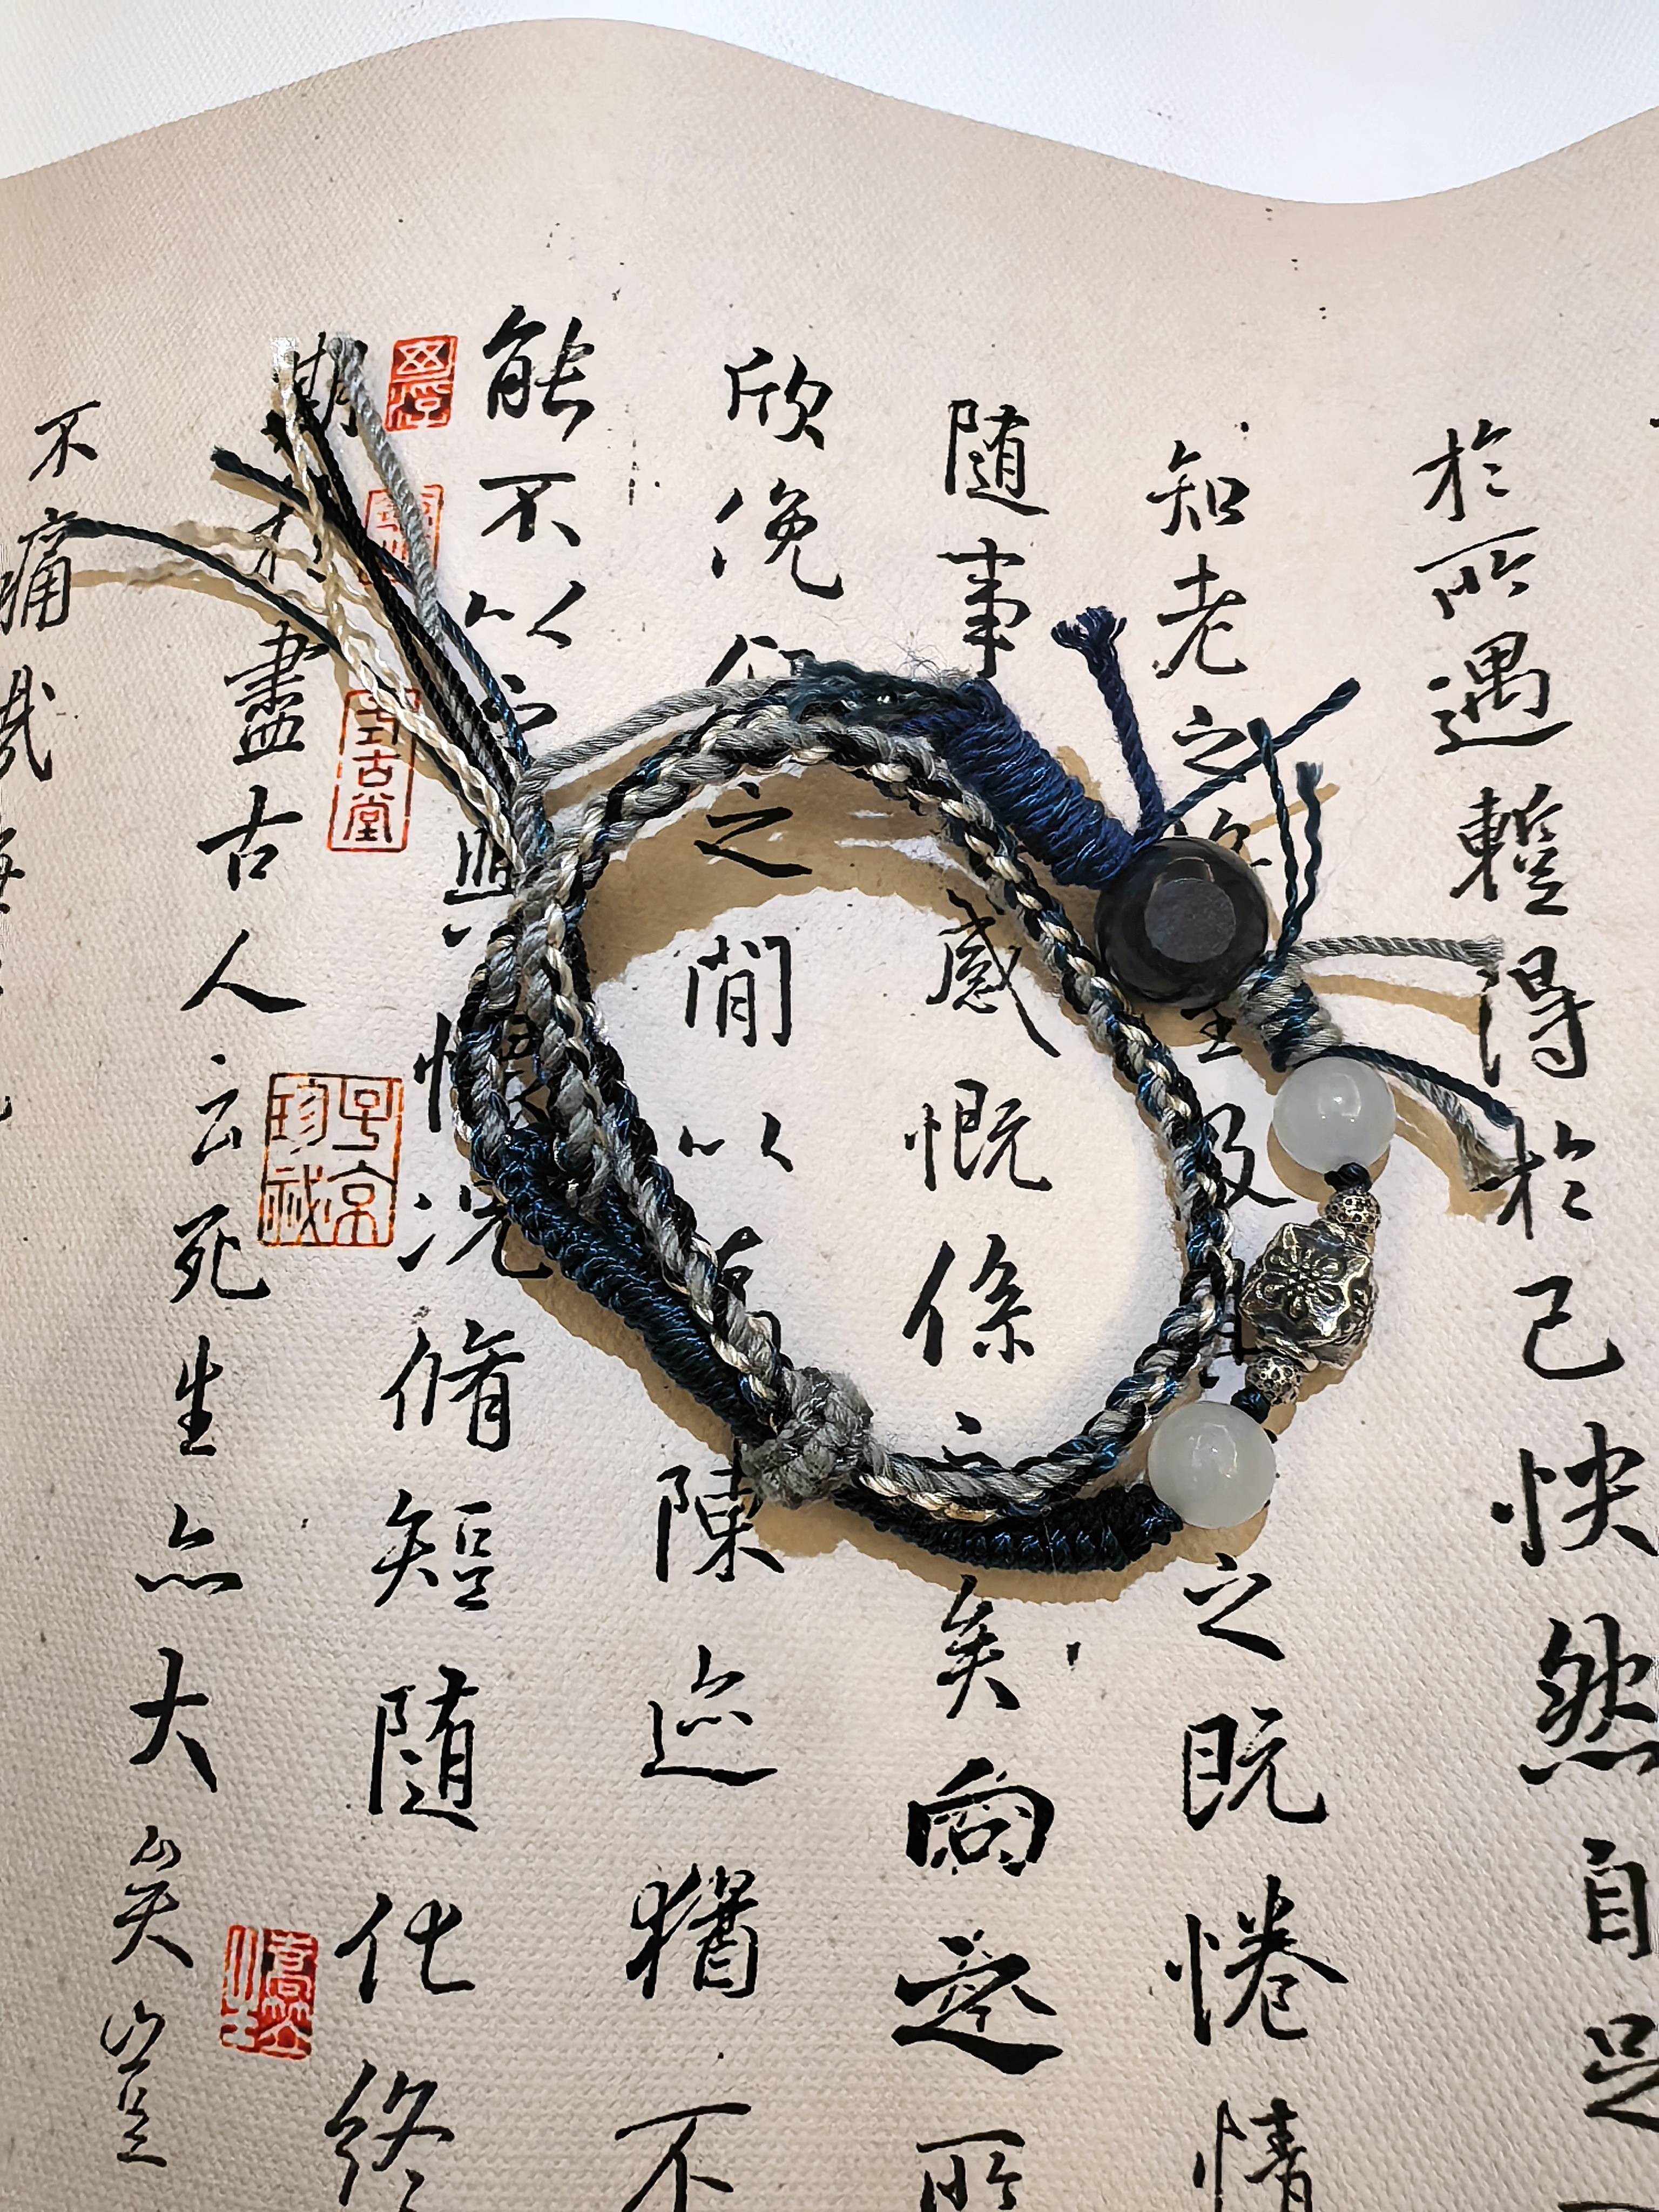 於所遇蹔得於己快然自足
知老之至及之既惓情
随事感慨係之矣向之所
欣俛仰之閒以為陳迹猶不
能不以之興懷況脩短随化終
期於盡古人云死生亦大矣豈
不痛哉
子京珍祕
古堂